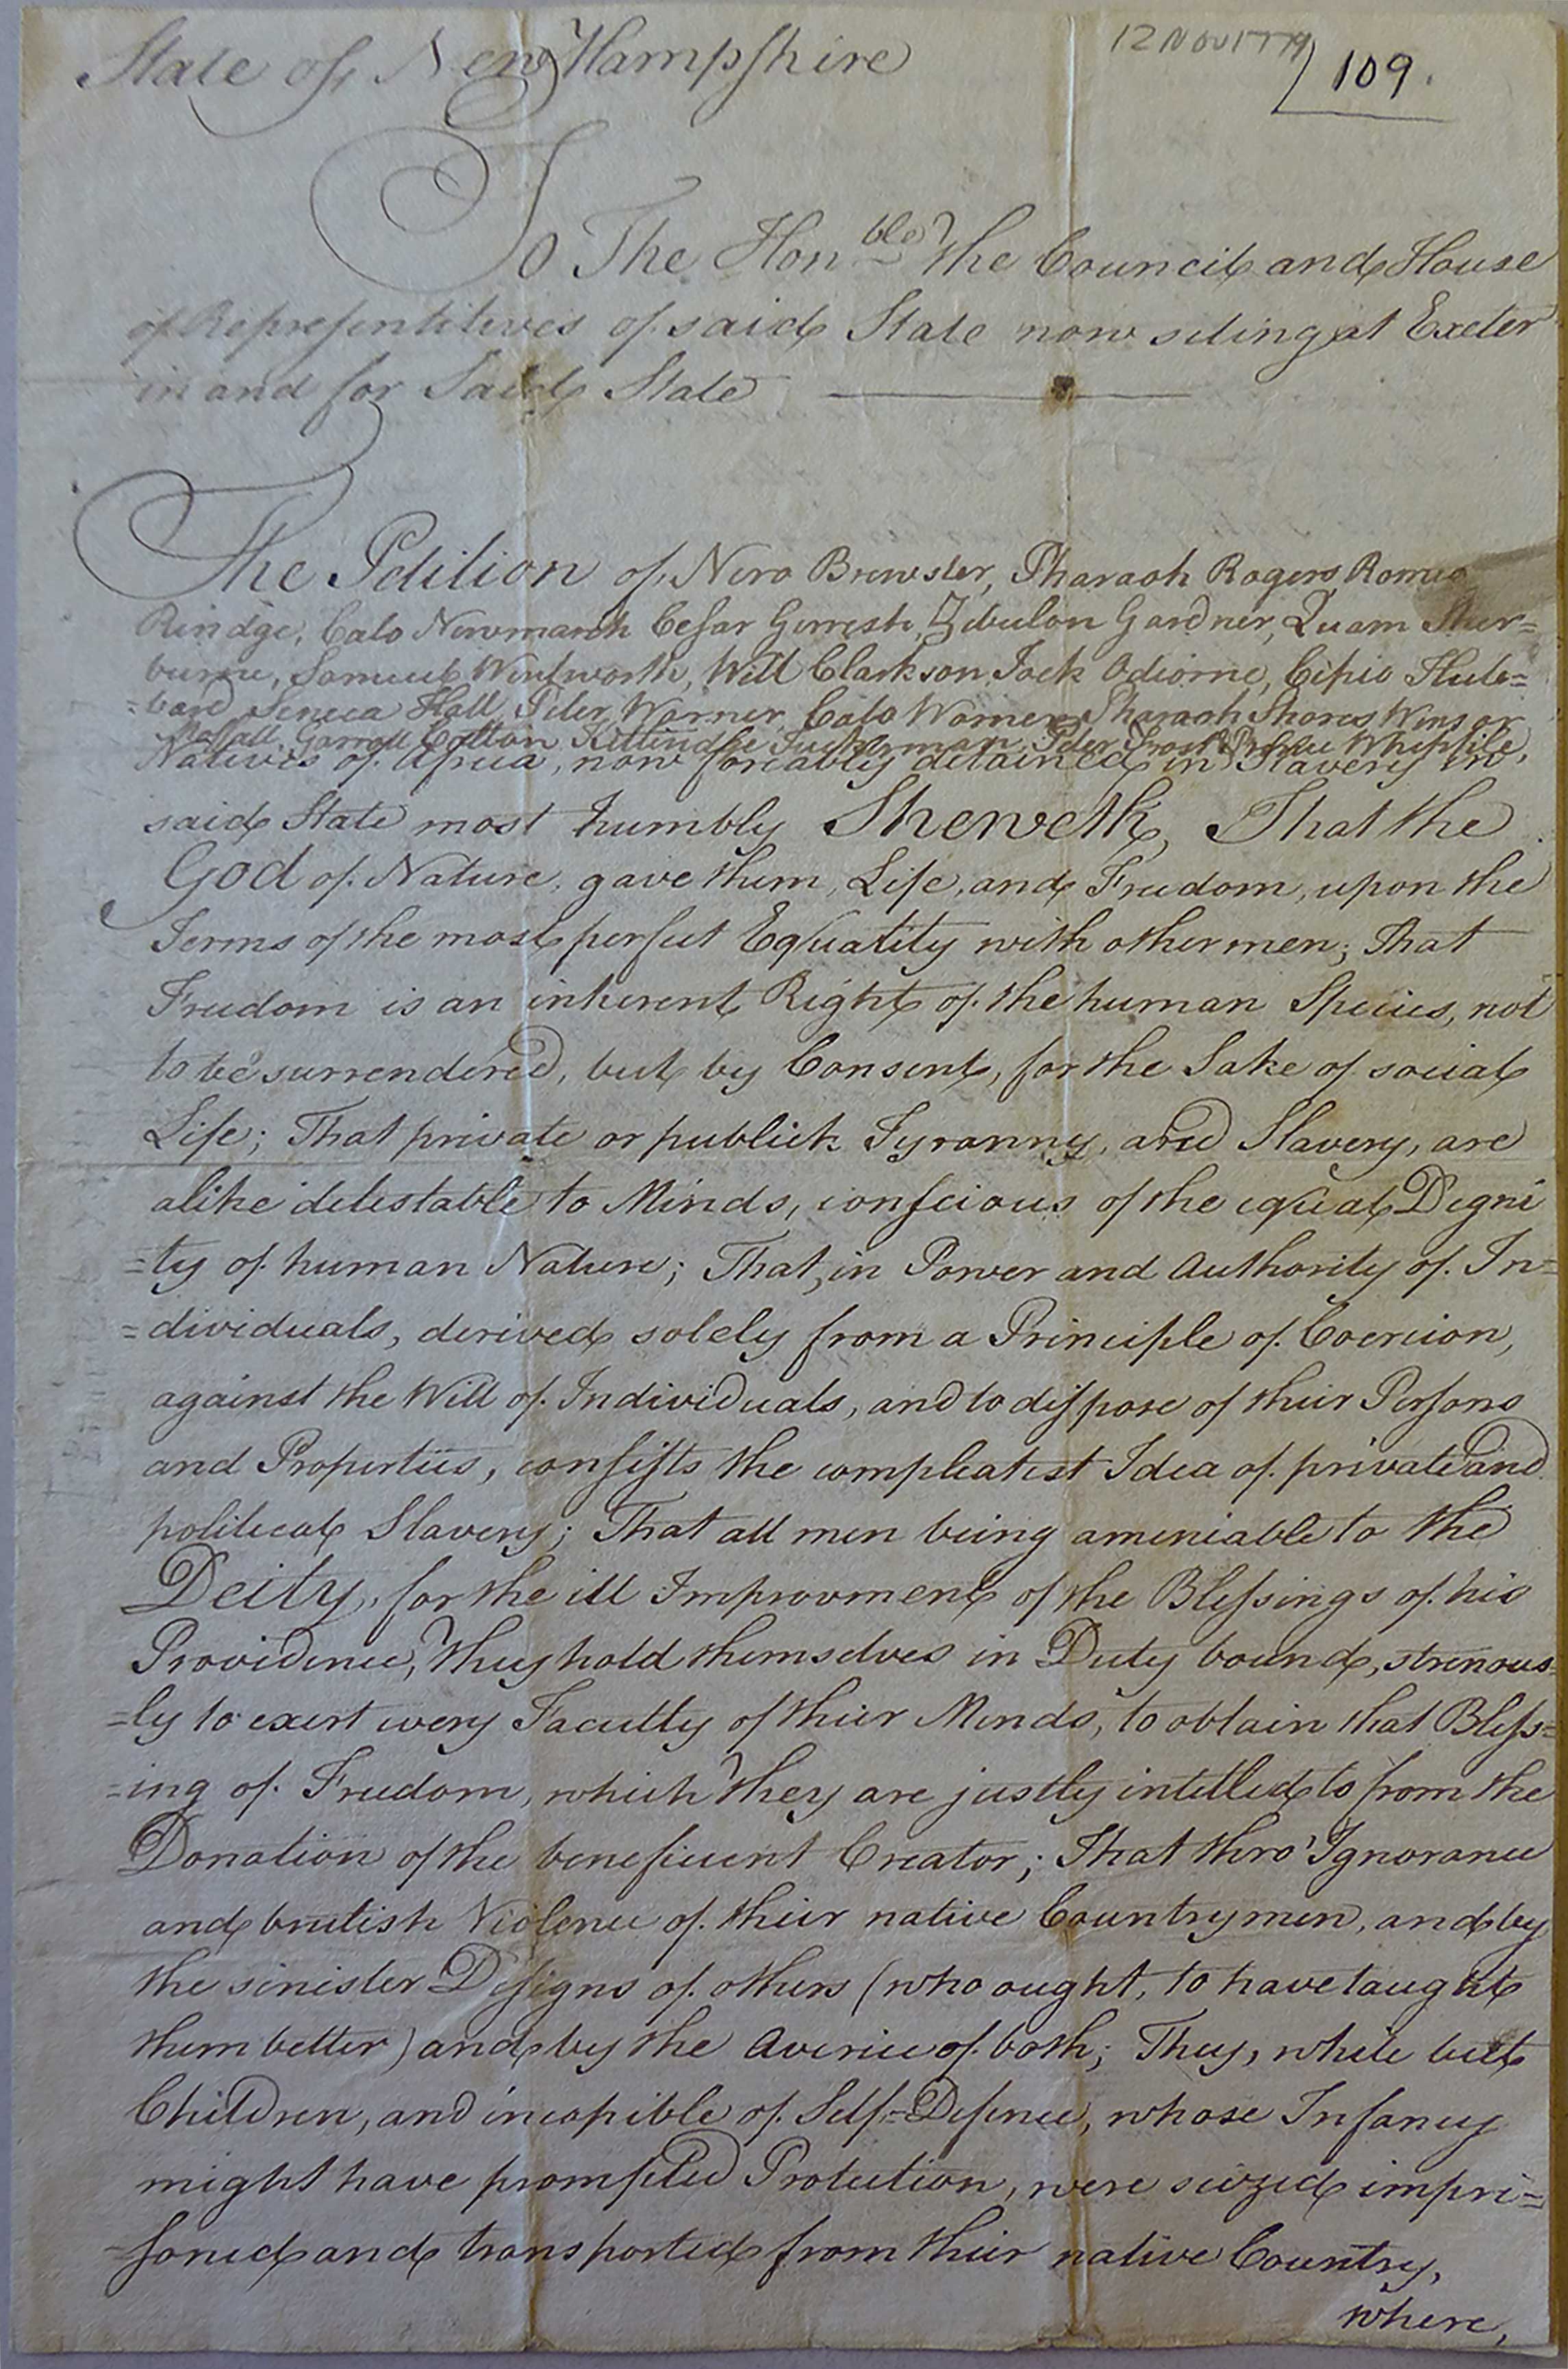 State of New Hampshire
12 NOV 1779
109.
To The Honble the Council and House
of Representitives of said State now siting at Exeter
in and for Said State
The Petition of Nero Brewster, Pharaoh Rogers Romeo
Rindge, Cato Newmarch Cesar Gerrish, Zebulon Gardner, Quam Sher=
burne, Samuel Wentworth, Will Clarkson, Jack Odiorne, Cipio Hub=
=bard Seneca Hall, Peter Warner, Cato Warner, Pharaoh Shores Winsor
Moffatt Garrott Cotton, Kittindge Tuckerman, Peter Frost Prince Whipple,
Natives of Africa, now forceably detained in Slavery in
said State most humbly Sheweth, That the
God of Nature, gave them, Life, and Freedom, upon the
Terms of the most perfect Equality with other men; That
Freedom is an inherent Right of the human Species, not
to be surrendered, but by Consent, for the Sake of social
Life; That private or publick Tyranny, and Slavery, are
alike detestable to Minds, conscious of the equal Digni
=ty of human Nature; That, in Power and Authority of In=
=dividuals, derived solely from a Principle of Coercion,
against the Will of Individuals, and to dispose of their Persons
and Properties, consists the compleatest Idea of private and
political Slavery; That all men being ameniable to the
Deity, for the ill Improvment of the Blessings of his
Providence, They hold themselves in Duty bound, strenous=
=ly to exert every Faculty of their Minds, to obtain that Bless=
=ing of Freedom, which they are justly intitled to from the
Donation of the beneficent Creator; That thro' Ignorance
and brutish Violence of their native Countrymen, and by
the sinister Designs of others (who ought, to have taught
them better) and by the Averice of both; They, while but
Children, and incapible of Self=Defence, whose Infancy
might have prompted Protection, were seized impri=
=soned and transported from their native Country,
where,